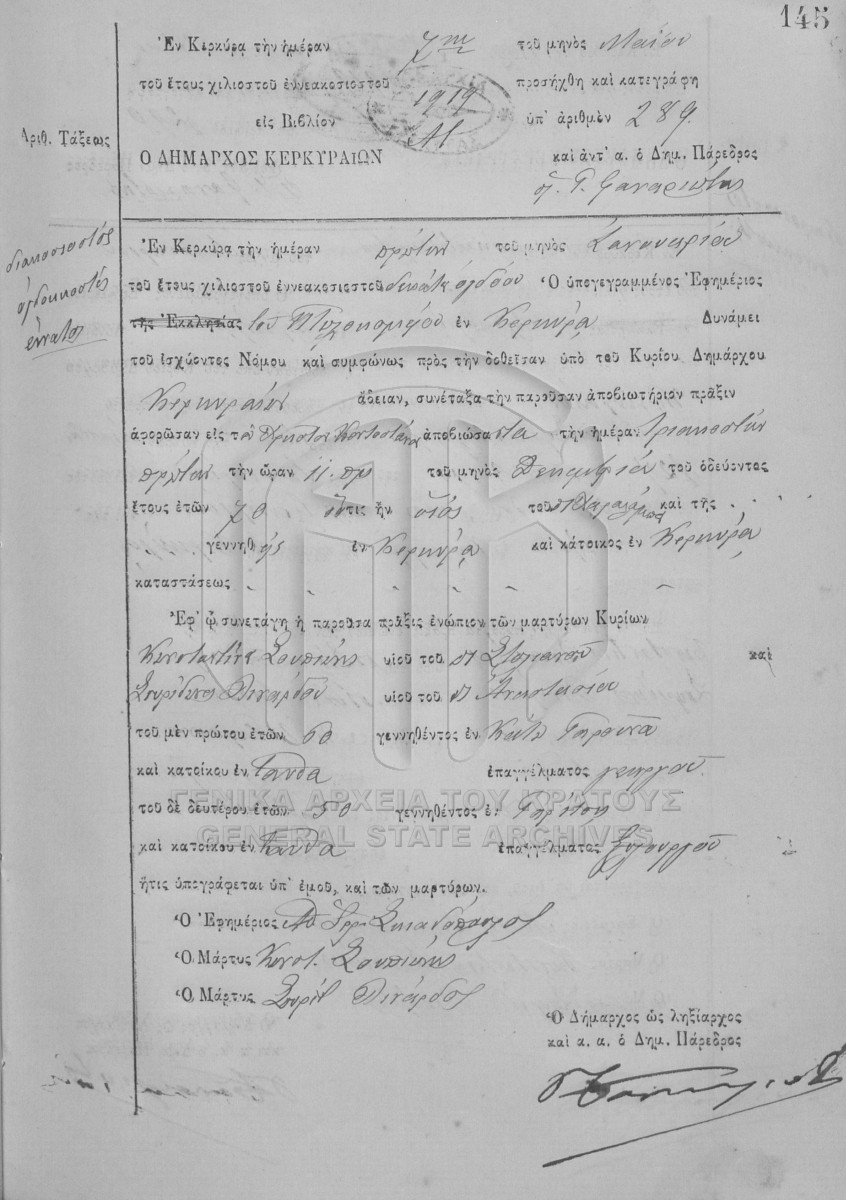 145
Ἐν Κερκύρᾳ τὴν ἡμέραν 7ην τοῦ μηνὸς Μαΐου
τοῦ ἔτους χιλιοστοῦ ἐννεακοσιοστοῦ 1919 προσήχθη καὶ κατεγράφη
εἰς Βιβλίον Α! ὑπ' ἀριθμὸν 289.
Ἀριθ. Τάξεως
Ο ΔΗΜΑΡΧΟΣ ΚΕΡΚΥΡΑΙΩΝ καὶ ἀντ' α. ὁ Δημ. Πάρεδρος
διακοσιοστὸς
ὀγδοηκοστὸς
ἔννατος
Ἐν Κερκύρᾳ τὴν ἡμέραν πρώτην τοῦ μηνὸς Ἰανουαρίου
τοῦ ἔτους χιλιοστοῦ ἐννεακοσιοστοῦ Ὁ ὑπογεγραμμένος Ἐφημέριος
τῆς Ἐκκλησίας τοῦ Πτωχοκομείου ἐν Κερκύρᾳ Δυνάμει
τοῦ ἰσχύοντος Νόμου καὶ συμφώνως πρὸς τὴν δοθεῖσαν ὑπὸ τοῦ Κυρίου Δημάρχου
Κερκυραίων ἄδειαν, συνέταξα τὴν παροῦσαν ἀποβιωτήριον πρᾶξιν
ἀφορῶσαν εἰς τὸν Χρῆστον ἀποβιώσαντα τὴν ἡμέραν τριακοστὴν
πρώτην τὴν ὥραν 11. πμ τοῦ μηνὸς Δεκεμβρίου τοῦ ὁδεύοντος
ἔτους ἐτῶν 70 ὅστις ἦν υἱὸς τοῦ Χαραλάμπους καὶ τῆς
γεννηθεὶς ἐν Κερκύρᾳ καὶ κάτοικος ἐν Κερκύρᾳ
καταστάσεως
Ἐφ' ᾧ συνετάγη ἡ παροῦσα πρᾶξις ἐνώπιον τῶν μαρτύρων Κυρίων
Κωνσταντίνου Σουπιώνη υἱοῦ τοῦ Στυλιανοῦ καὶ
Σπυρίδωνος Λινάρδου υἱοῦ τοῦ Ἀναστασίου
τοῦ μὲν πρώτου ἐτῶν 60 γεννηθέντος ἐν Κάτω Γαροῦνα
καὶ κατοίκου ἐν ἐπαγγέλματος γεωργοῦ.
τοῦ δὲ δευτέρου ἐτῶν 50 γεννηθέντος ἐν Γαρίτσῃ
καὶ κατοίκου ἐν ἐπαγγέλματος ξυλουργοῦ
ἥτις ὑπογράφεται ὑπ' ἐμοῦ, καὶ τῶν μαρτύρων.
Ὁ Ἐφημέριος
Ὁ Μάρτυς Κωνστ. Σουπιώνης
Ὁ Μάρτυς Σπυρίδ Λινάρδος
Ὁ Δήμαρχος ὡς ληξίαρχος
καὶ α. α. ὁ Δημ. Πάρεδρος
ΓΕΝΙΚΑ ΑΡΧΕΙΑ ΤΟΥ ΚΡΑΤΟΥΣ
GENERAL STATE ARCHIVES